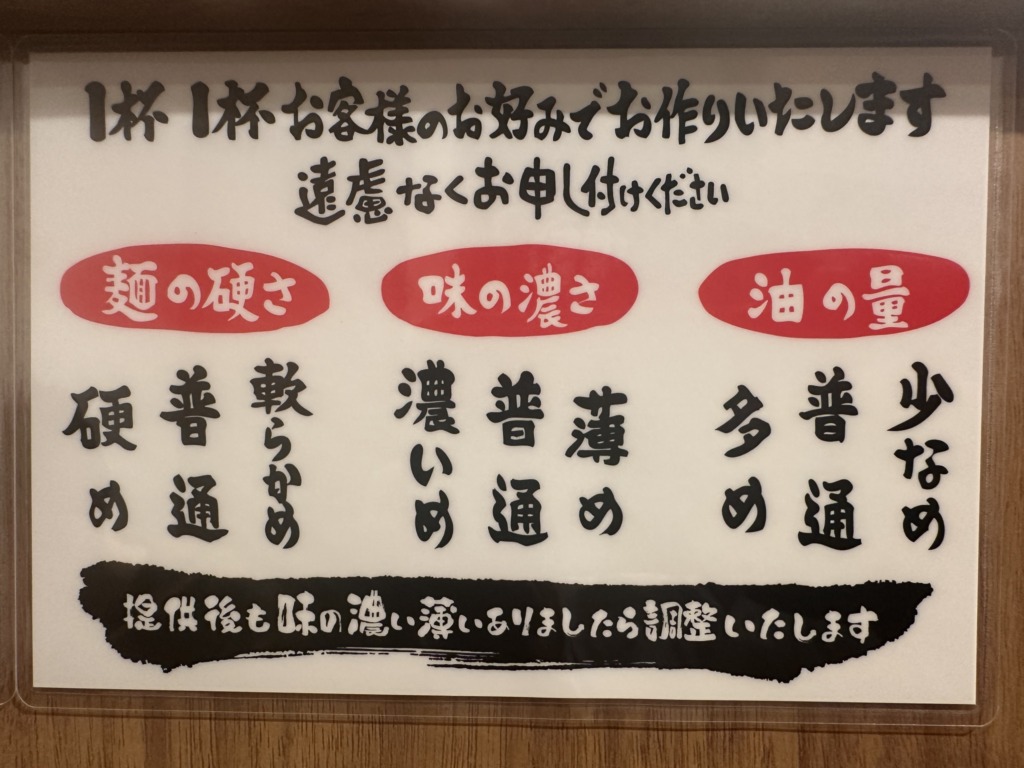 1杯1杯お客様のお好みでお作りいたします
遠慮なくお申し付けください
麺の硬さ
硬め
普通
軟らかめ
味の濃さ
濃いめ
普通
薄め
油の量
多め
普通
少なめ
提供後も味の濃い薄いありましたら調整いたします